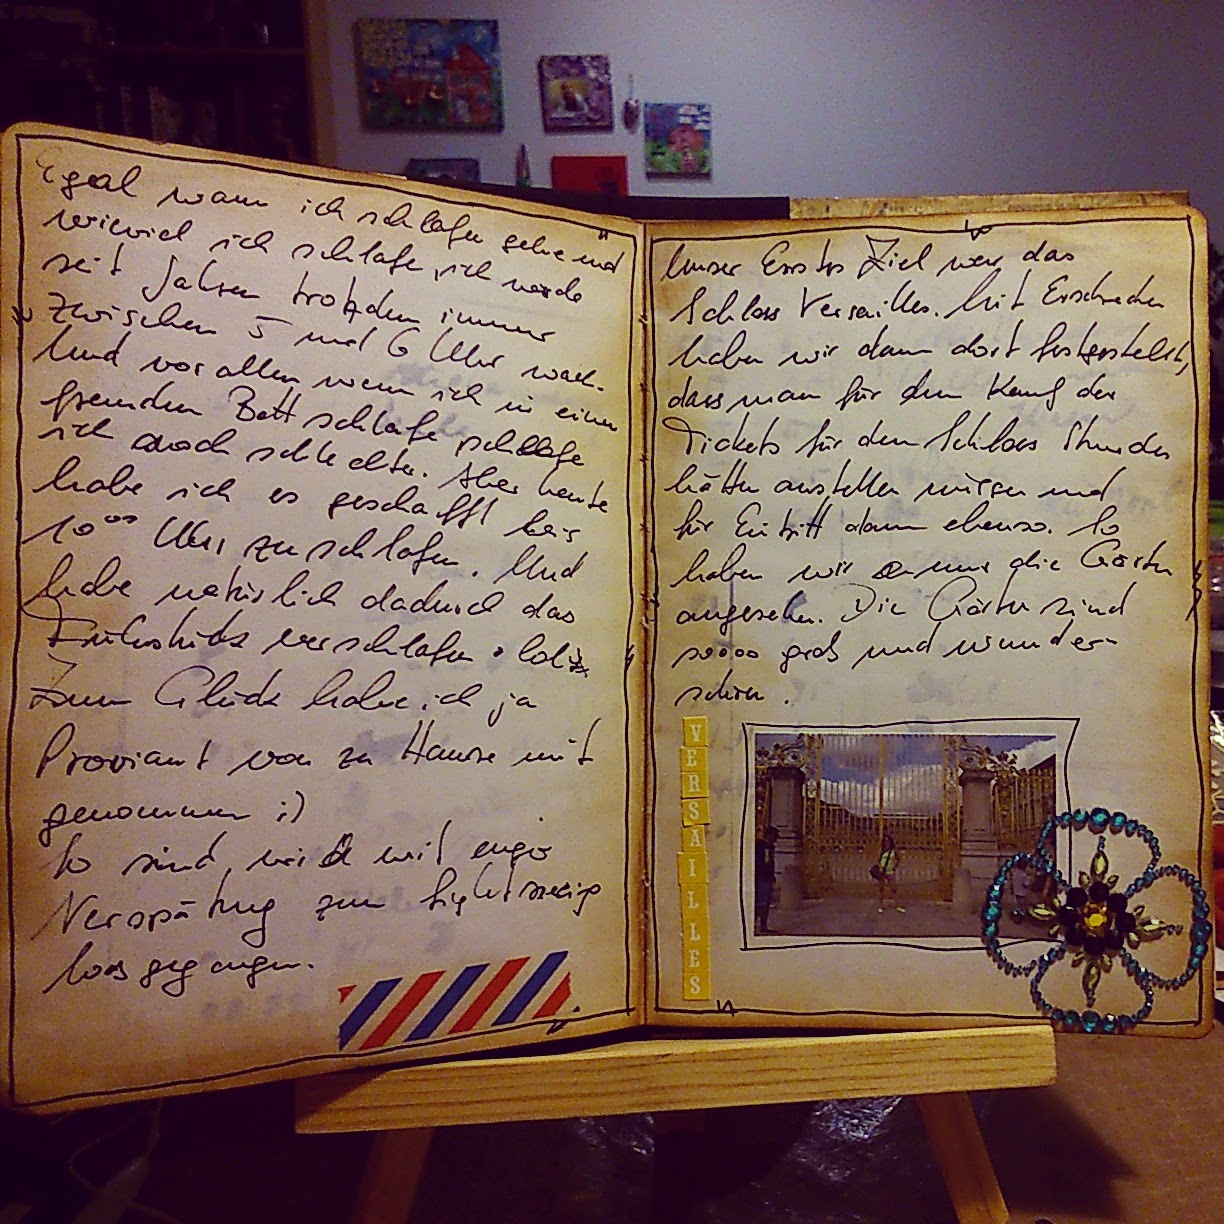 Egal wann ich schlafen gehe und
wieviel ich schlafe, ich werde
seit Jahren trotzdem immer
zwischen 5 und 6 Uhr wach.
Und vor allem wenn ich in einem
fremden Bett schlafe schlafe
ich noch schlechter. Aber heute
habe ich es geschafft bis
10⁰⁰ Uhr zu schlafen. Und
habe natürlich dadurch das
Frühstück verschlafen. lol
Zum Glück habe ich ja
Proviant von zu Hause mit
genommen ;)
So sind wir mit einiger
Verspätung zum Sightseeing
losgegangen.
Unser Erstes Ziel war das
Schloss Versailles. Mit Erschrecken
haben wir dann dort festgestellt,
dass man für den Kauf der
Tickets für den Schloss Stunden
hätten anstellen müssen und
für Eintritt dann ebenso. So
haben wir nur die Gärten
angesehen. Die Gärten sind
soooo groß und wunder-
schön.
VERSAILLES